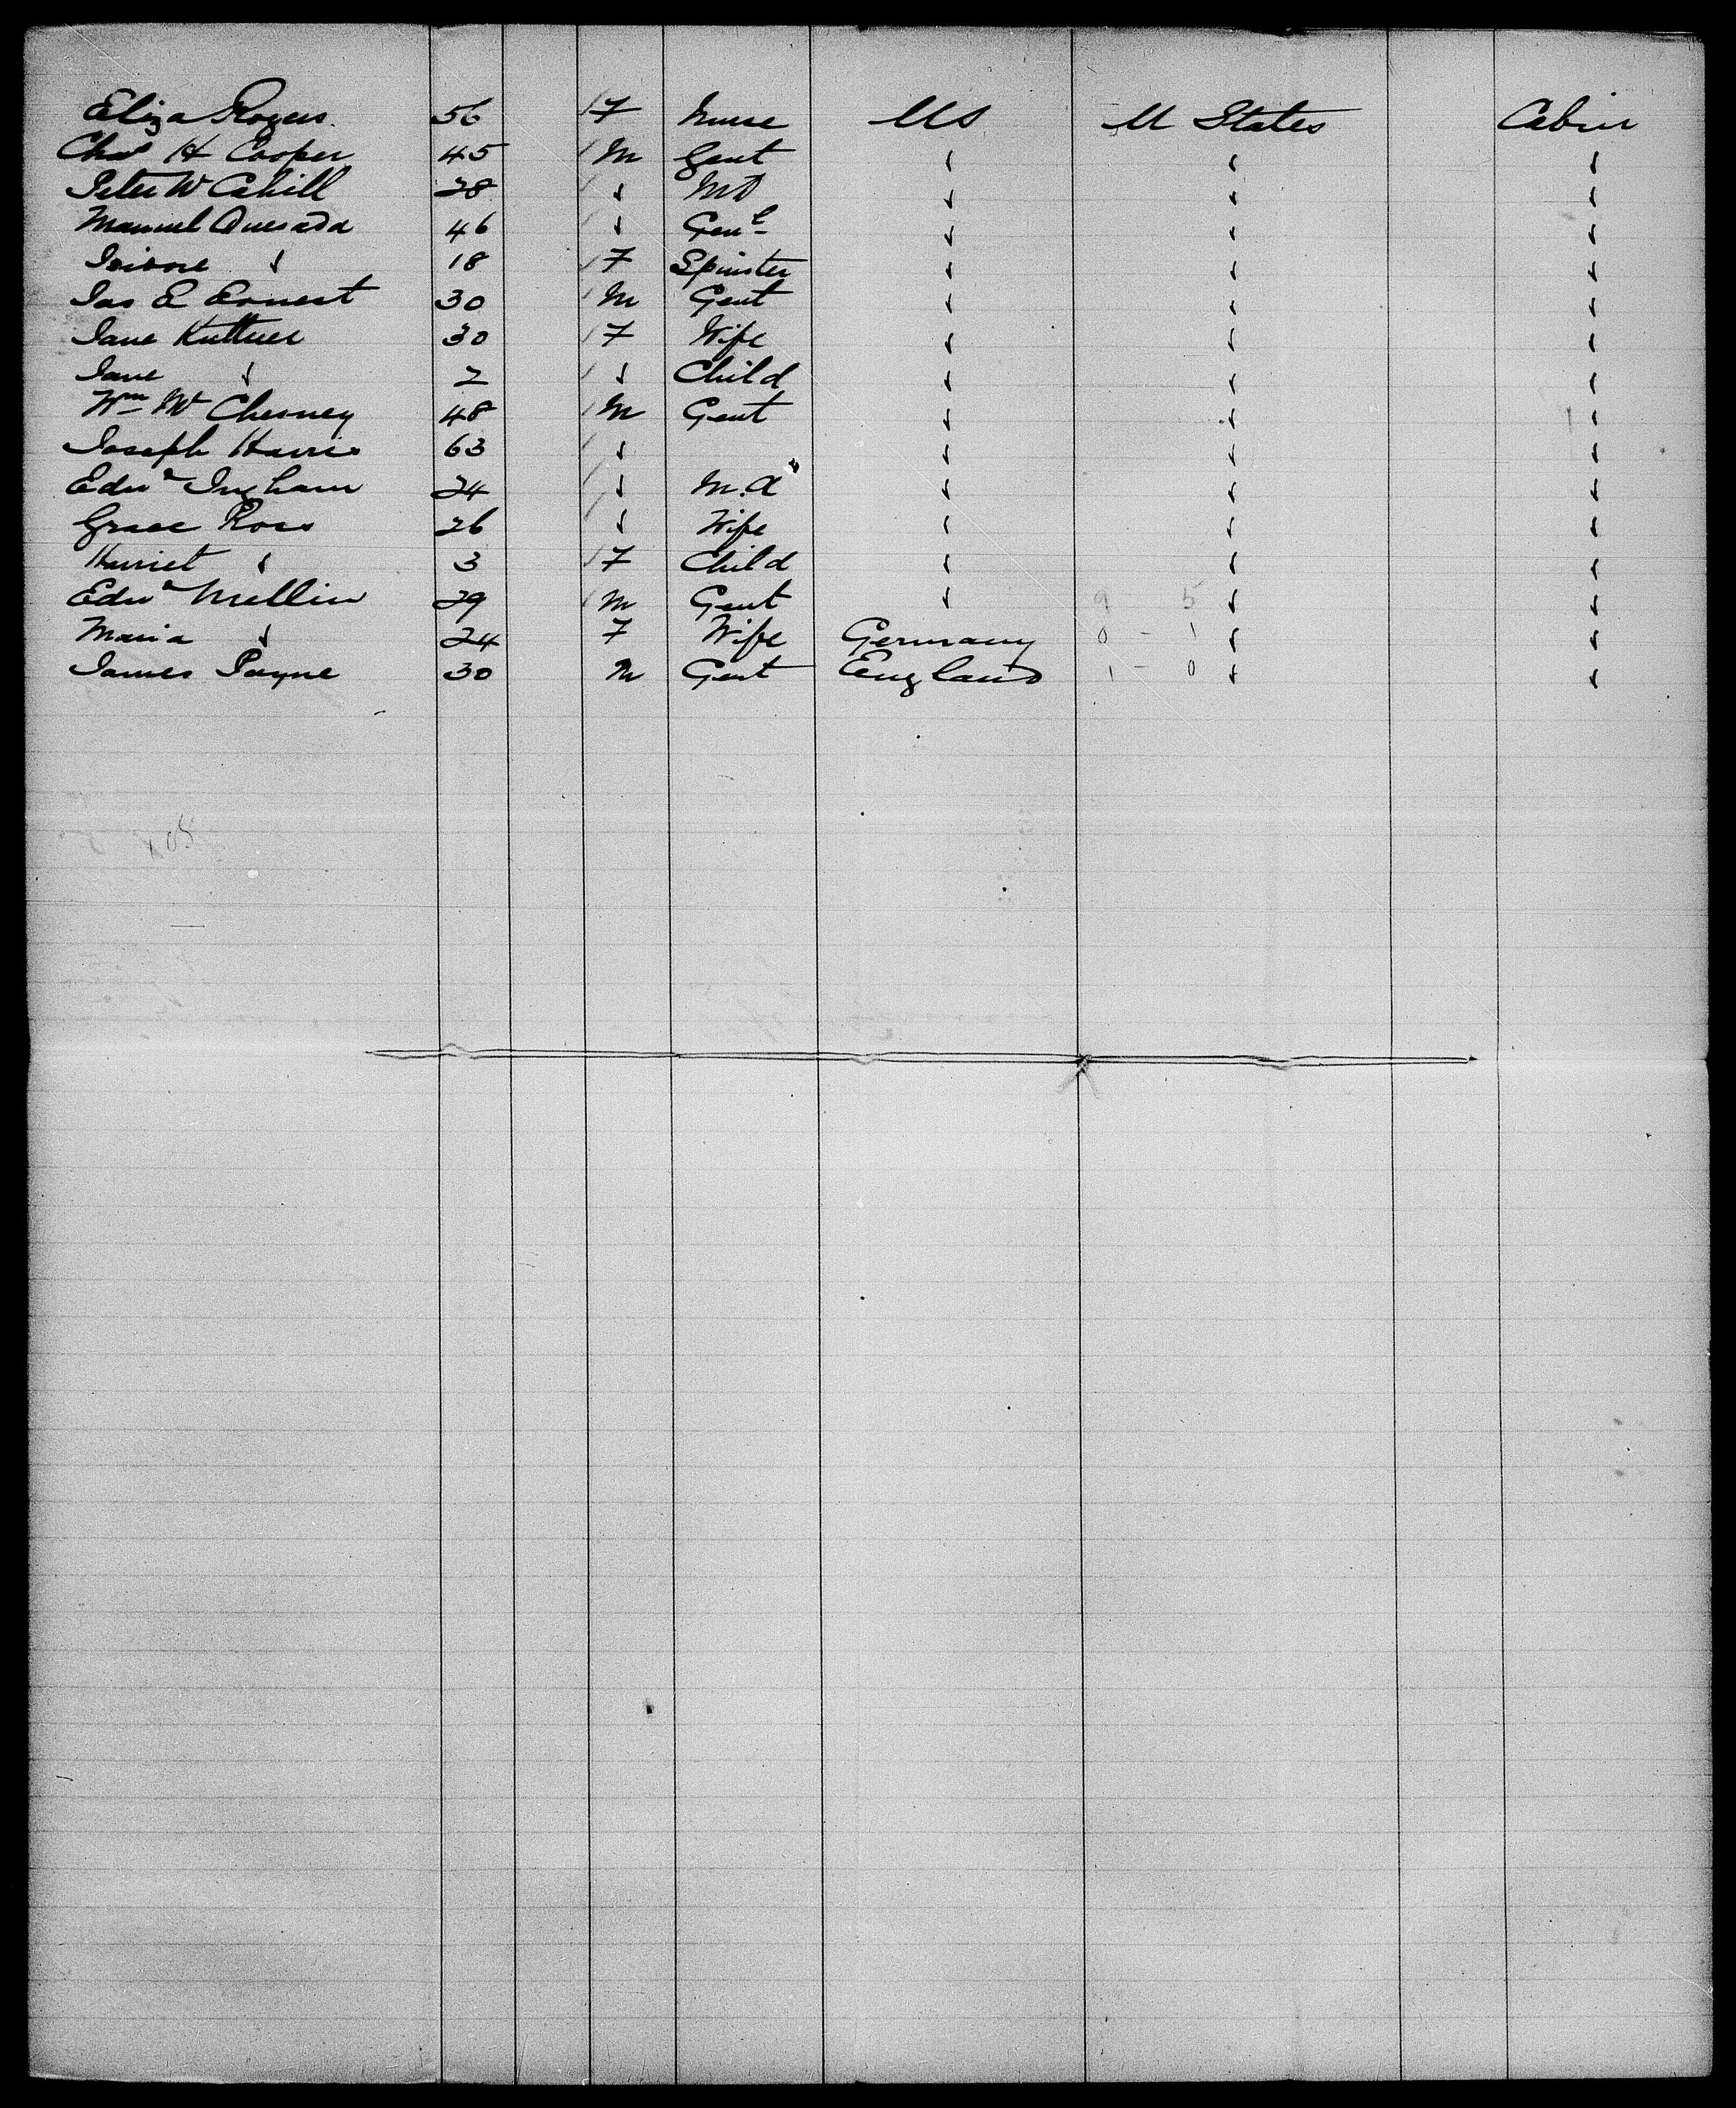 Eliza Rogers 56 F Nurse US U States Cabin
Chas H Cooper 45 M Gent " " "
Peter W Cahill 28 " MD " " "
Manuel Quesada 46 " Genl " " "
" 18 F Spinster " " "
Jas E Ernest 30 M Gent " " "
Jane Kuttner 30 F Wife " " "
Jane " 2 " Child " " "
Wm Mc Chesney 48 M Gent " " "
Joseph Harris 63 " " " "
Edwd Ingham 24 " M.D " " "
Grace Ross 26 " Wife " " "
Harriet " 3 F Child " " "
Edwd Mellin 29 M Gent " 9 5 " "
Maria " 24 F Wife Germany 0 - 1 " "
James Payne 30 M Gent England 1 - 0 " "